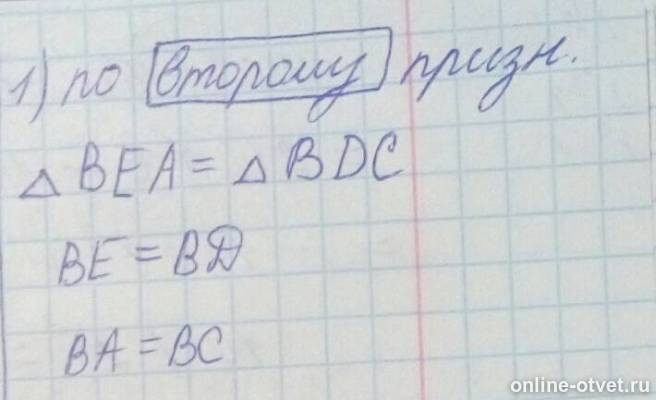 1) по второму призн.
△ BEA = △ BDC
BE = BД
BA = BC
online-otvet.ru